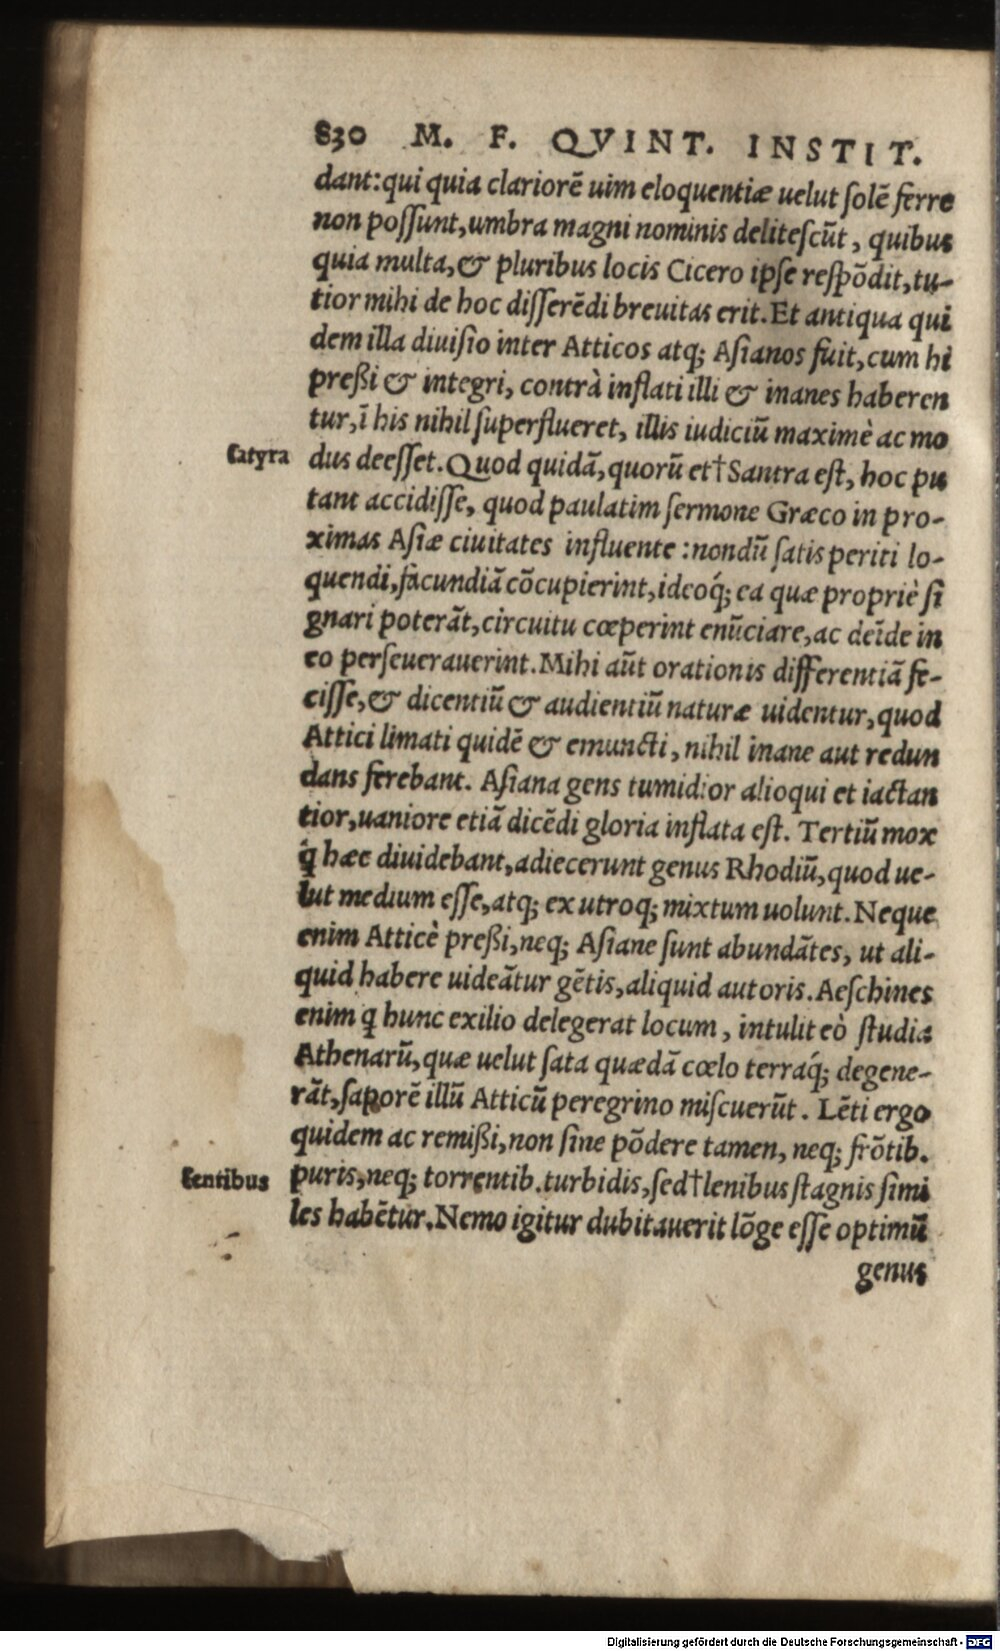 830 M. F. QVINT. INSTIT.
dant: qui quia clariorē uim eloquentiæ uelut ſolē ferre
non poſſunt, umbra magni nominis deliteſcūt, quibus
quia multa, & pluribus locis Cicero ipſe reſpōdit, tu-
tior mihi de hoc diſſerēdi breuitas erit. Et antiqua qui
dem illa diuiſio inter Atticos atq; Aſianos fuit, cum hi
preßi & integri, contrà inflati illi & inanes haberen
tur, ī his nihil ſuperflueret, illis iudiciū maximè ac mo
ſatyra
dus deeſſet. Quod quidā, quorū et †Santra eſt, hoc pu
tant accidiſſe, quod paulatim ſermone Græco in pro-
ximas Aſiæ ciuitates influente: nondū ſatis periti lo-
quendi, facundiā cōcupierint, ideoq́; ea quæ propriè ſi
gnari poterāt, circuitu cœperint enūciare, ac deīde in
eo perſeuerauerint. Mihi aūt orationis differentiā fe-
ciſſe, & dicentiū & audientiū naturæ uidentur, quod
Attici limati quidē & emuncti, nihil inane aut redun
dans ferebant. Aſiana gens tumidior alioqui et iactan
tior, uaniore etiā dicēdi gloria inflata eſt. Tertiū mox
q̇ hæc diuidebant, adiecerunt genus Rhodiū, quod ue-
lut medium eſſe, atq; ex utroq; mixtum uolunt. Neque
enim Atticè preßi, neq; Aſiane ſunt abundātes, ut ali-
quid habere uideātur gētis, aliquid autoris. Aeſchines
enim q̇ hunc exilio delegerat locum, intulit eò ſtudia
Athenarū, quæ uelut ſata quædā cœlo terraq́; degene-
rāt, ſaporē illū Atticū peregrino miſcuerūt. Lēti ergo
quidem ac remißi, non ſine pōdere tamen, neq; frōtib.
ſentibus
puris, neq; torrentib. turbidis, ſed †lenibus ſtagnis ſimi
les habētur. Nemo igitur dubitauerit lōge eſſe optimū
genus
Digitalisierung gefördert durch die Deutsche Forschungsgemeinschaft - DFG